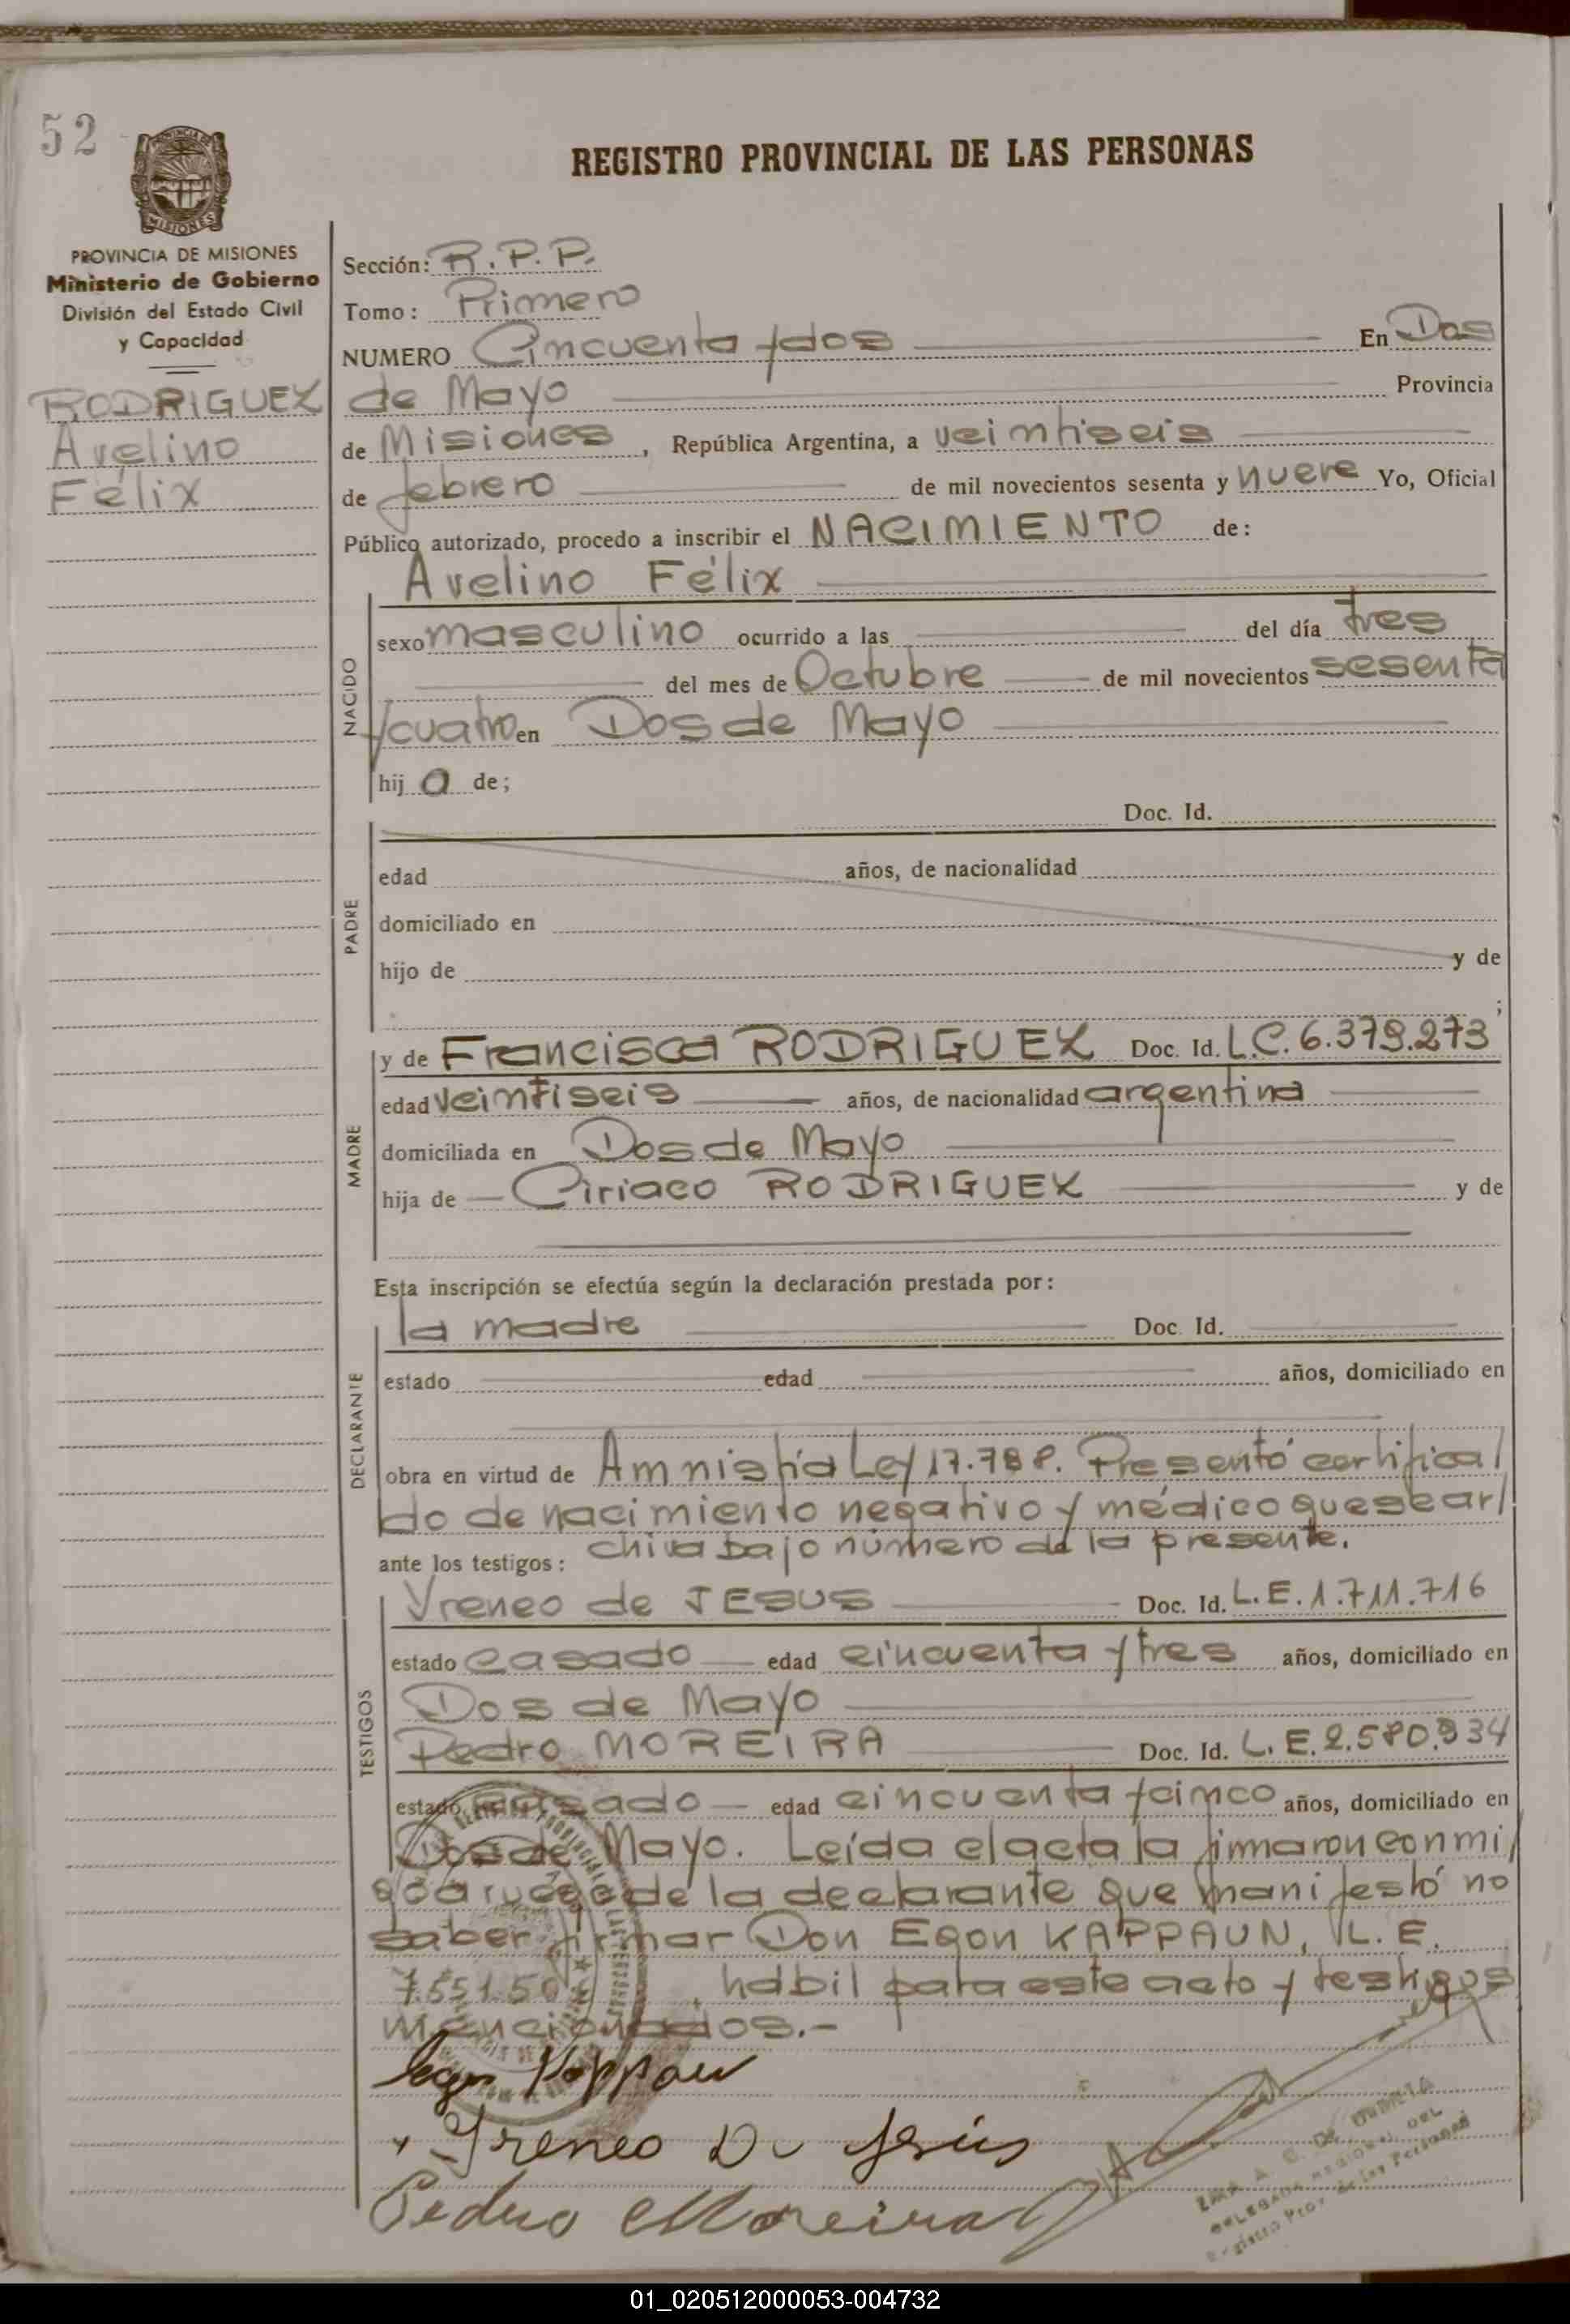 52
REGISTRO PROVINCIAL DE LAS PERSONAS
PROVINCIA DE MISIONES
Ministerio de Gobierno
División del Estado Civil
y Capacidad
RODRIGUEZ
Avelino
Félix
Sección: R.P.P.
Tomo: Primero
NUMERO Cincuenta y dos En Dos
de Mayo Provincia
de Misiones, República Argentina, a veintiseis
de febrero de mil novecientos sesenta y nueve Yo, Oficial
Público autorizado, procedo a inscribir el NACIMIENTO de:
Avelino Félix
NACIDO
sexo masculino ocurrido a las del día tres
del mes de Octubre de mil novecientos sesenta
y cuatro en Dos de Mayo
hij o de;
PADRE
Doc. Id.
edad años, de nacionalidad
domiciliado en
hijo de y de
;
MADRE
y de Francisca RODRIGUEZ Doc. Id. L.C. 6.379.273
edad veintiseis años, de nacionalidad argentina
domiciliada en Dos de Mayo
hija de Ciriaco RODRIGUEZ y de
Esta inscripción se efectúa según la declaración prestada por:
DECLARANTE
la madre Doc. Id.
estado edad años, domiciliado en
obra en virtud de Amnistía Ley 17.788. Presentó certifica/
do de nacimiento negativo y médico que se ar/
ante los testigos: chiva bajo número de la presente.
TESTIGOS
Yreneo de JESUS Doc. Id. L.E. 1.711.716
estado casado edad cincuenta y tres años, domiciliado en
Dos de Mayo
Pedro MOREIRA Doc. Id. L.E. 2.580.934
estado casado edad cincuenta y cinco años, domiciliado en
Dos de Mayo. Leída el acta la firmaron conmi/
go a ruego de la declarante que manifestó no
saber firmar Don Egon KAPPAUN, L.E.
7.551.50 , hábil para este acto y testigos
mencionados.-
Egon Kappaun
Ireneo De Jesús
Pedro Moreira
DELEGADA REGIONAL DEL
Registro Prov. de las Personas
01_020512000053-004732